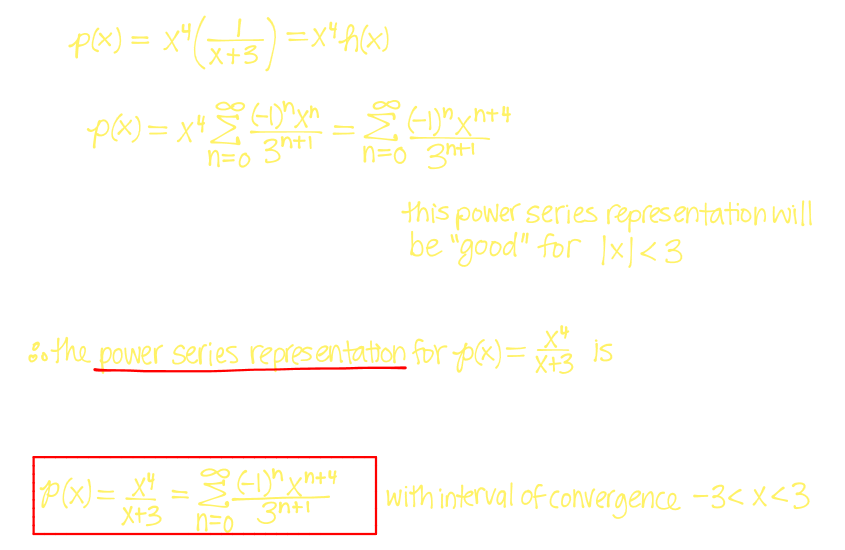 p(x) = x⁴(1/(x+3)) = x⁴h(x)
p(x) = x⁴ ∑_{n=0}^{∞} (-1)ⁿxⁿ/3ⁿ⁺¹ = ∑_{n=0}^{∞} (-1)ⁿxⁿ⁺⁴/3ⁿ⁺¹
this power series representation will
be "good" for |x| < 3
∴ the power series representation for p(x) = x⁴/(x+3) is
p(x) = x⁴/(x+3) = ∑_{n=0}^{∞} (-1)ⁿxⁿ⁺⁴/3ⁿ⁺¹ with interval of convergence -3 < x < 3